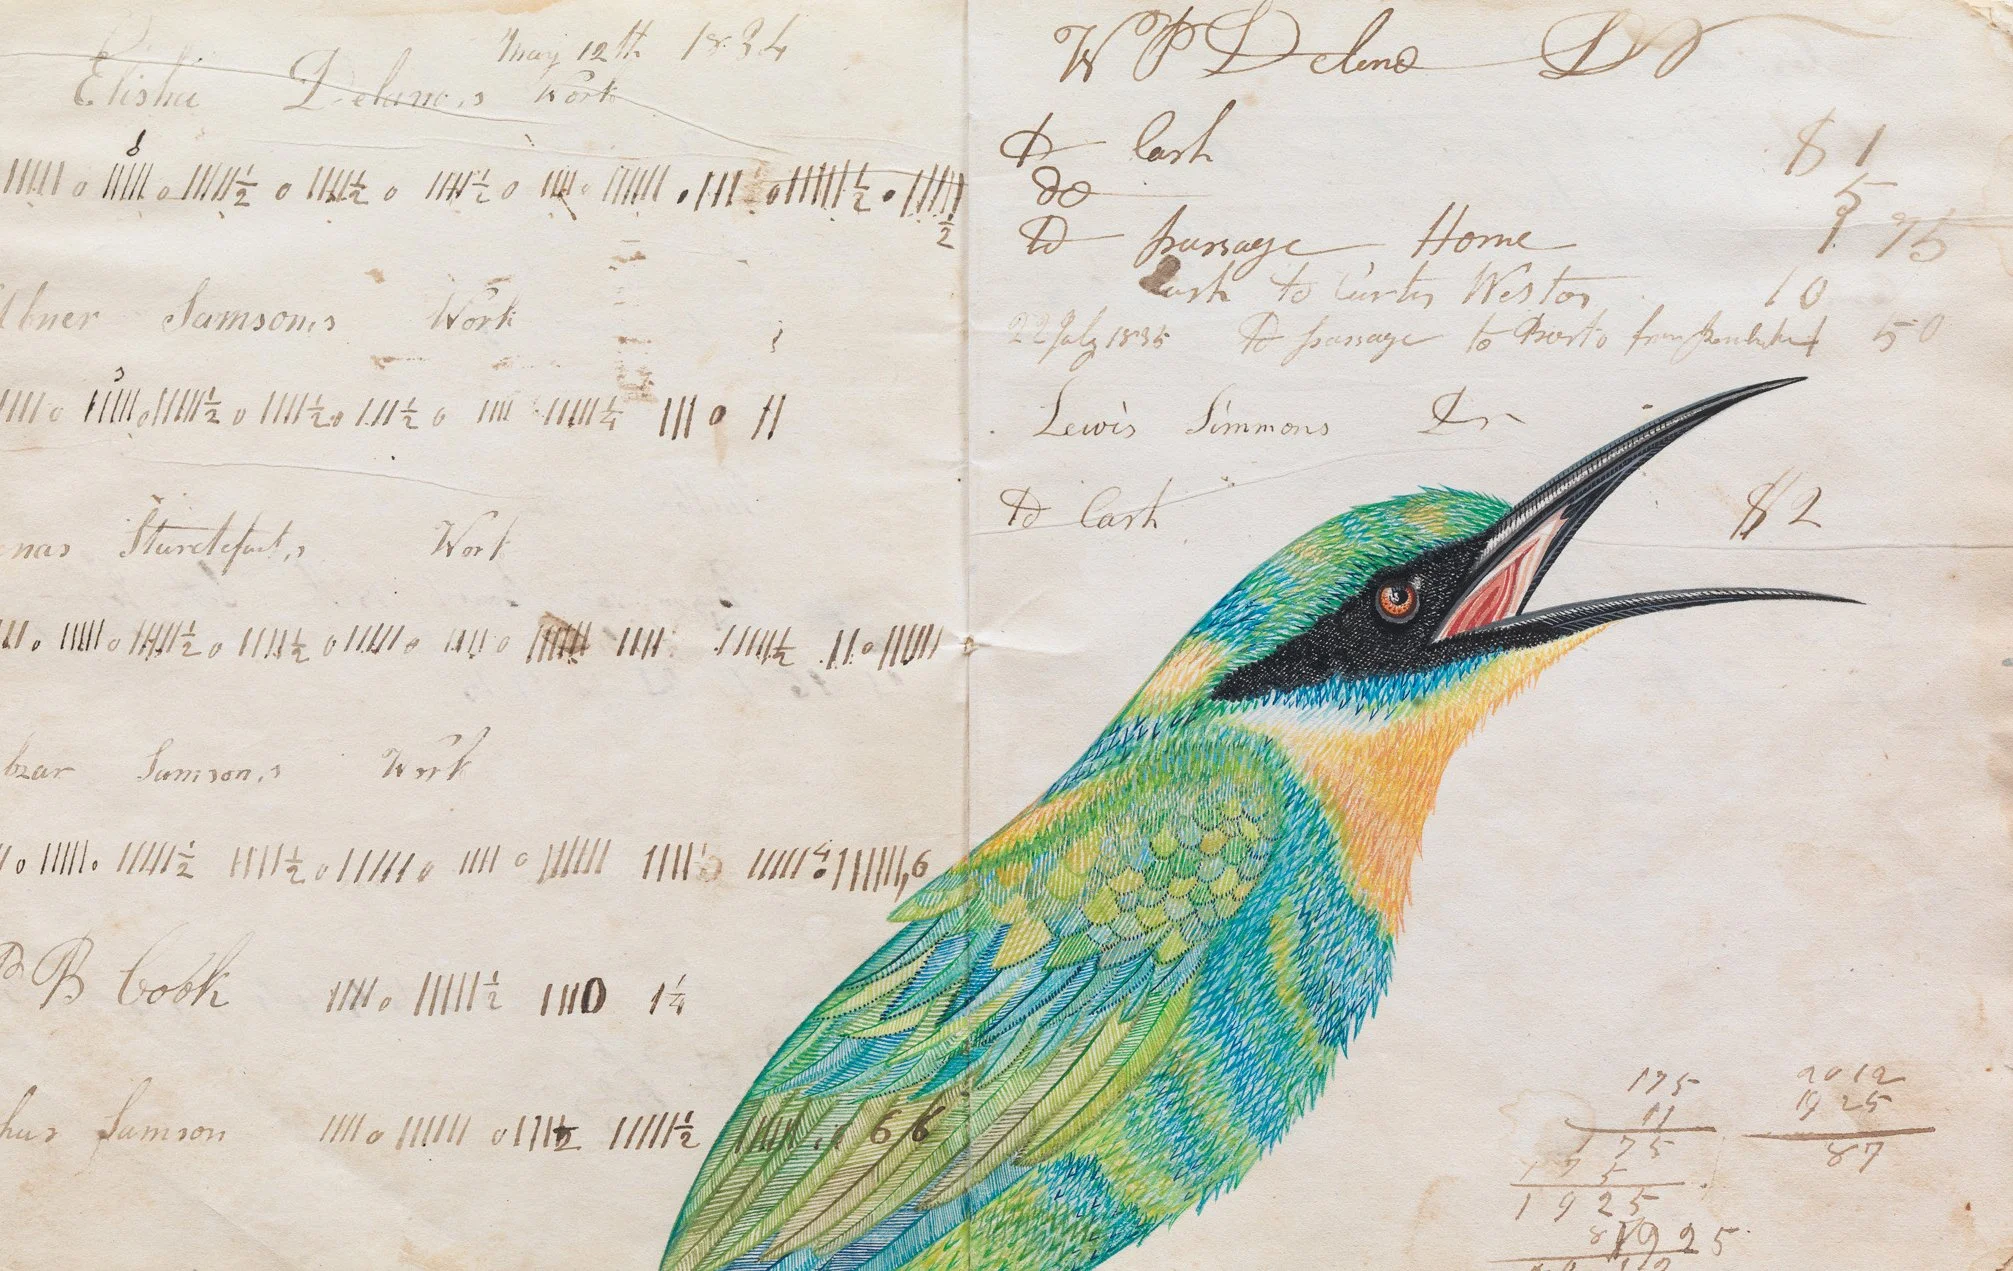 May 12th 1834
Elisha Delano,s Work
6
||||| o ||||| o |||||½ o ||||½ o ||||½ o |||| o |||||| . |||| o ||||||½ . |||||½
Abner Samson,s Work
|||| o ||||| o ||||||½ o ||||½ o |||½ o |||| |||||¼ ||| o ||
Sturdefant,s Work
|| o ||||| o |||||½ o ||||½ o ||||| o |||| o |||||| |||| |||||½ || o |||||
Samson,s Work
o ||||| . ||||½ ||||½ o ||||| o |||| o |||||| |||| |||||
B Cook |||| o |||||½ |||0 1¼
Samson |||| o |||||| o |||½ |||||½ ||||| 66
W P Delano Dr
To Cash $ 1
do 5
To passage Home 1 75
Cash to Curtis Weston 10
22 July 1835 To passage to Boston from 50
Lewis Simmons Dr
To Cash $2
175
11
175
175
1925
1925
2012
1925
87